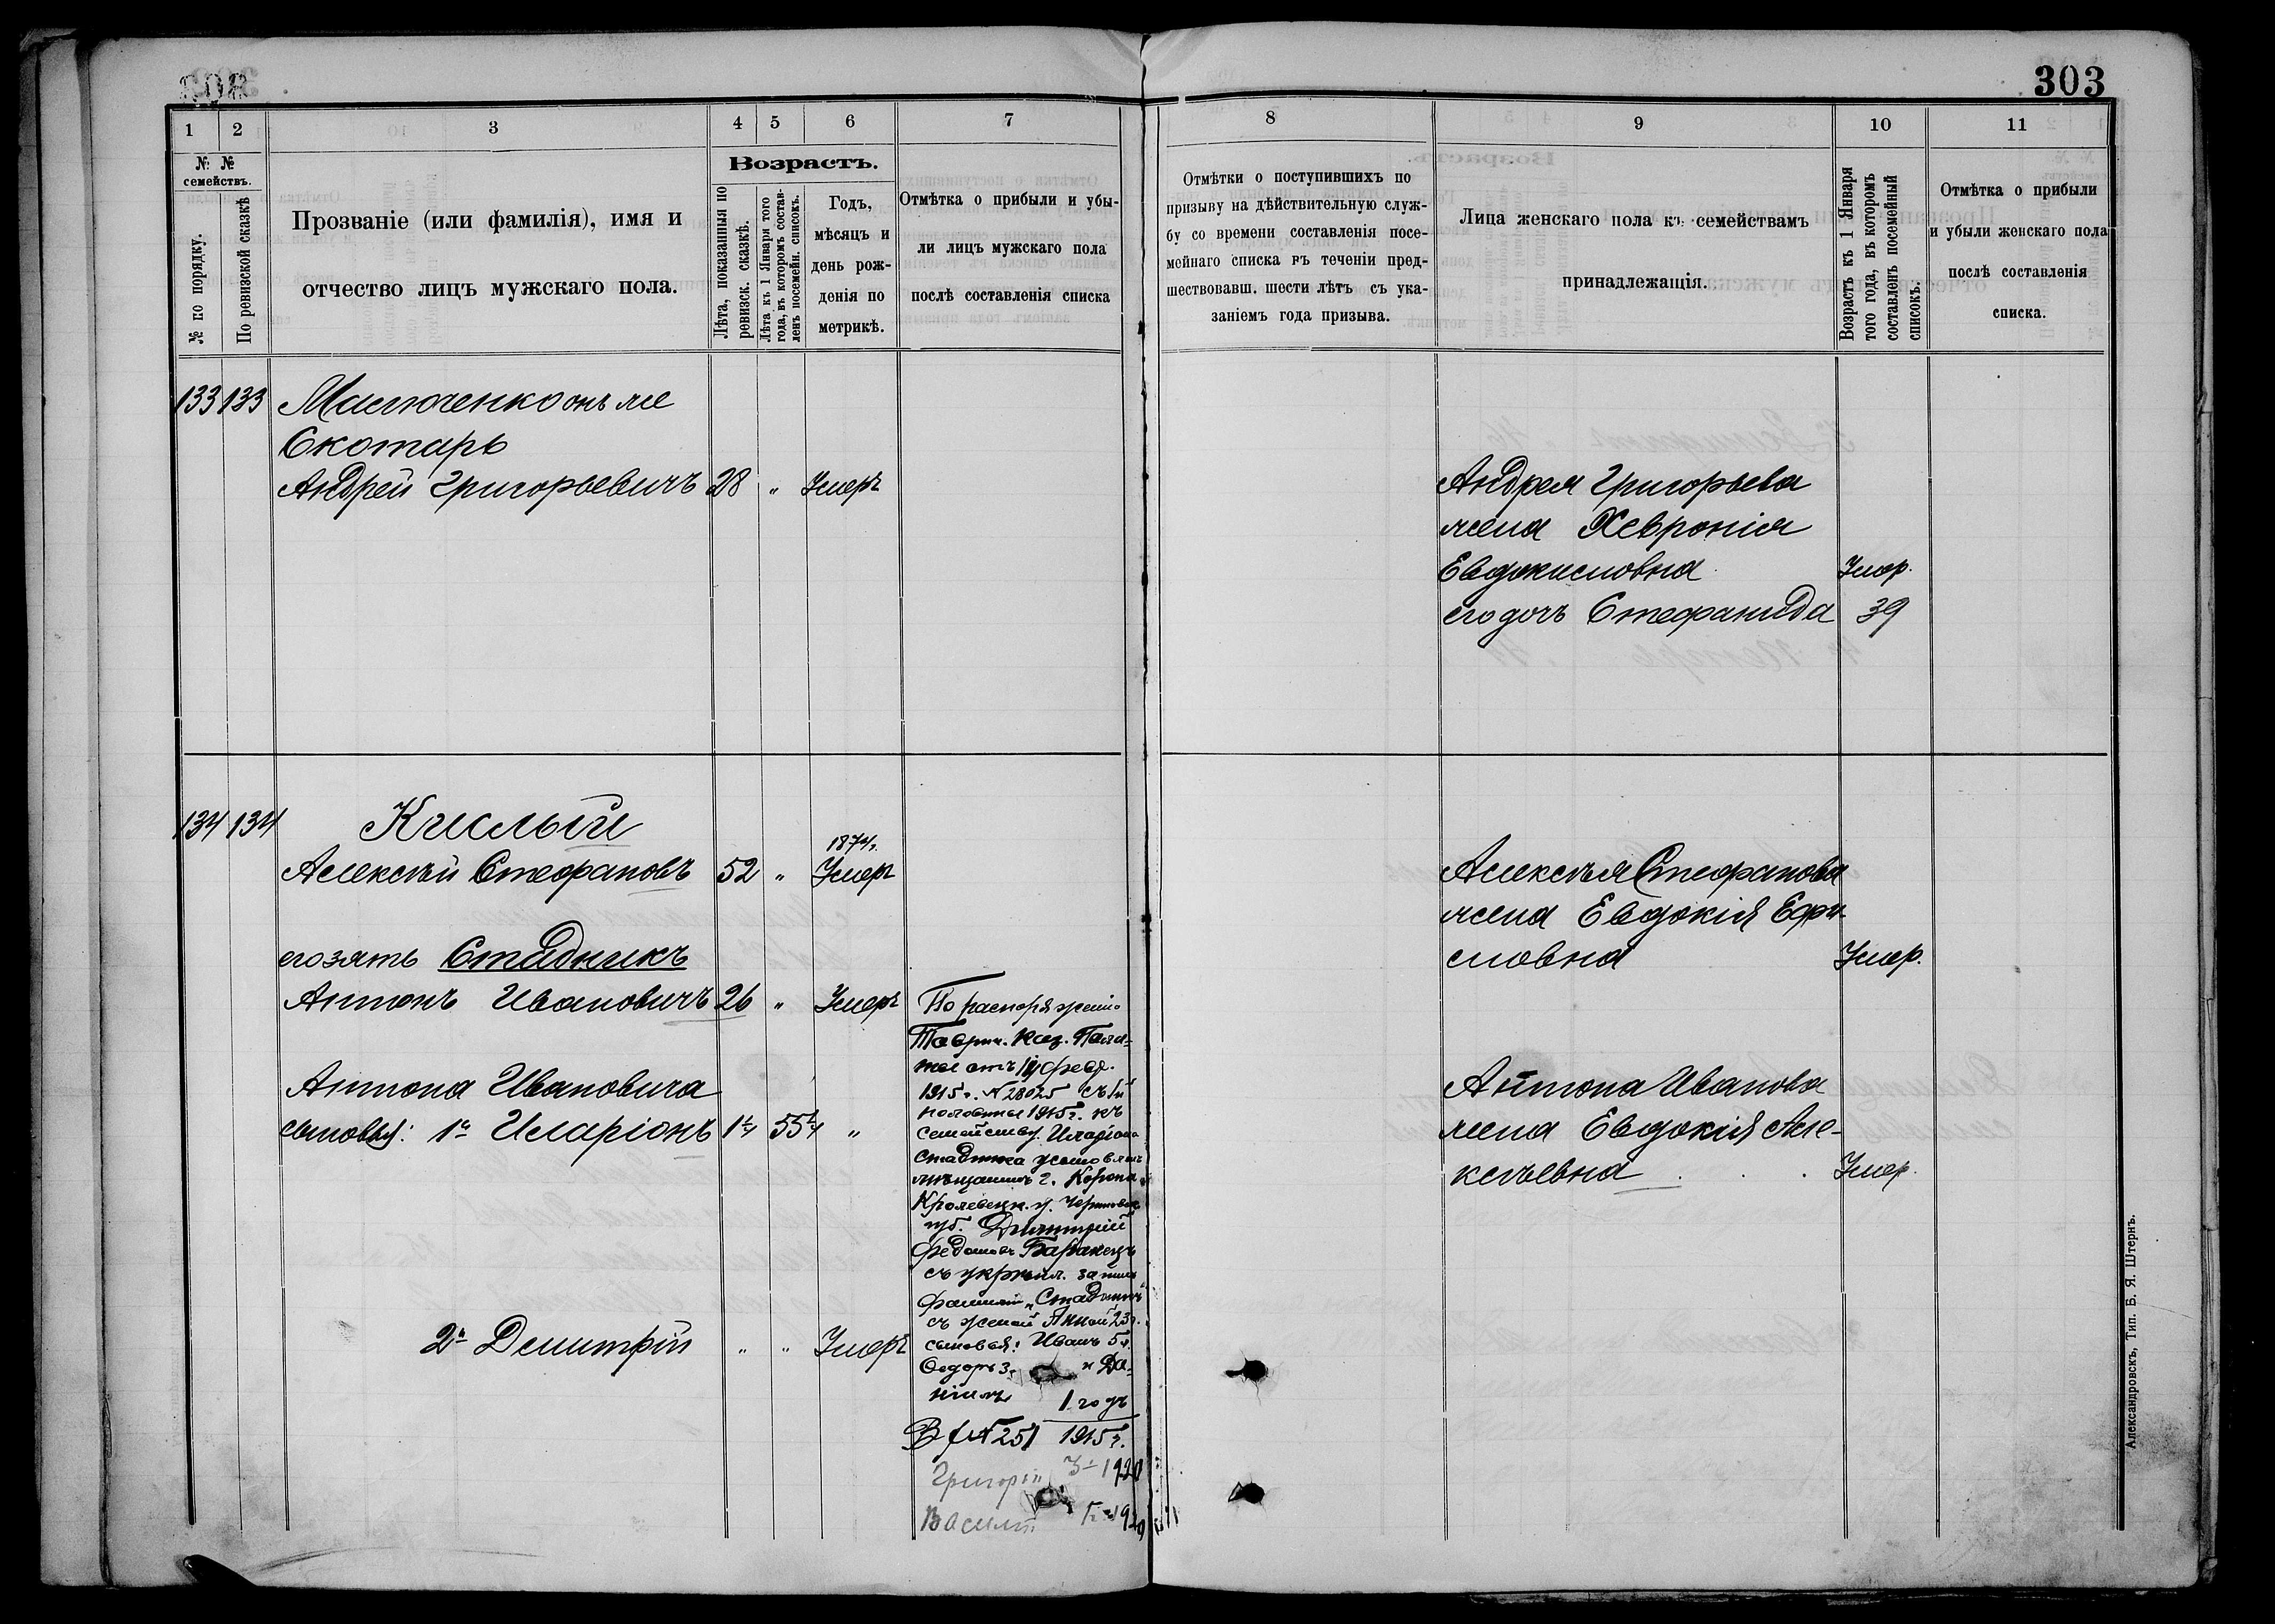 303
1
2
3
4
5
6
7
№ №
семействъ.
№ по порядку.
По ревизской сказкѣ
Прозваніе (или фамилія), имя и
отчество лицъ мужскаго пола.
Возрастъ.
Лѣта, показанныя по
ревизск. сказкѣ.
Лѣта къ 1 Января того
года, въ которомъ состав-
ленъ посемейн. списокъ.
Годъ,
мѣсяцъ и
день рож-
денія по
метрикѣ.
Отмѣтка о прибыли и убы-
ли лицъ мужскаго пола
послѣ составленія списка
133 133
онъ же
Скотарь
Андрей Григорьевичъ 28 " Умеръ
134 134 Кислый
1874г.
Алексѣй Стефановъ 52 " Умеръ
его зять Стадникъ
Антонъ Ивановичъ 26 " Умеръ
Антона Ивановича
сыновья: 1й Иларіонъ 1¼ 55¼ "
2й Димитрій " " Умеръ
По распоряженію
Таврич. Каз. Пала-
ты отъ фев.
1915 г. № 28025 съ 1й
половины 1915 г. къ
семейству Иларіона
Стадника усыновленъ
мѣщанинъ г. Коропа
Кролевецк. у. Чернигов.
губ. Димитрій
Федотовъ
съ укрѣпл. за нимъ
фамиліи "Стадникъ"
съ женой Анной 23 г.
сыновья: Иванъ 5 л.
Ѳедоръ 3 и Да-
ніилъ 1 годъ
№ 251 1915 г.
Григорій
Василій
8
9
10
11
Отмѣтки о поступившихъ по
призыву на дѣйствительную служ-
бу со времени составленія посе-
мейнаго списка въ теченіи пред-
шествовавш. шести лѣтъ съ ука-
заніемъ года призыва.
Лица женскаго пола къ семействамъ
принадлежащія.
Возрастъ къ 1 Января
того года, въ которомъ
составленъ посемейный
списокъ.
Отмѣтка о прибыли
и убыли женскаго пола
послѣ составленія
списка.
Андрея Григорьева
жена Хевронія
Евдокимовна Умер.
его дочь Стефанида 39
Алексѣя Стефанова
жена Евдокія Ефи-
мовна Умер.
Антона Иванова
жена Евдокія Але-
ксѣевна Умер.
Александровскъ, Тип. Б. Я. Штернъ.